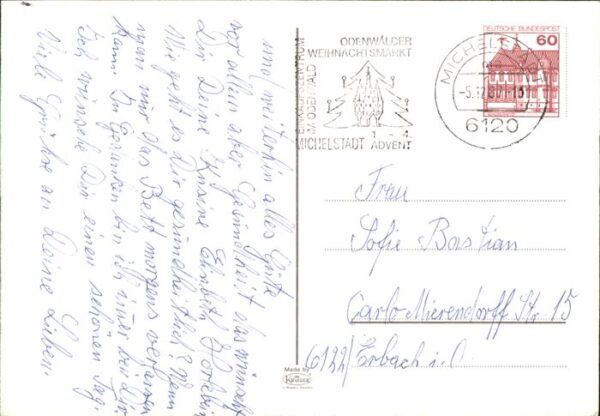 und weiterhin alles Gute
vor allem aber Gesundheit das wünscht
Dir Deine Kusine Elsbeth
Wie geht es Dir gesundheitlich? Wenn
man nur das Bett morgens verlassen
kann. In Gedanken bin ich immer bei Dir
Ich wünsche Dir einen schönen Tag.
Viele Grüße an Deine Lieben.
EINKAUFSZENTRUM
IM ODENWALD
ODENWÄLDER
WEIHNACHTSMARKT
1. - 4.
MICHELSTADT ADVENT
MICHELSTADT
-5.12.80-13
6120
DEUTSCHE BUNDESPOST
60
Frau
Sofie Bastian
Carlo-Mierendorff Str. 15
6122/ Erbach i. O.
Made by